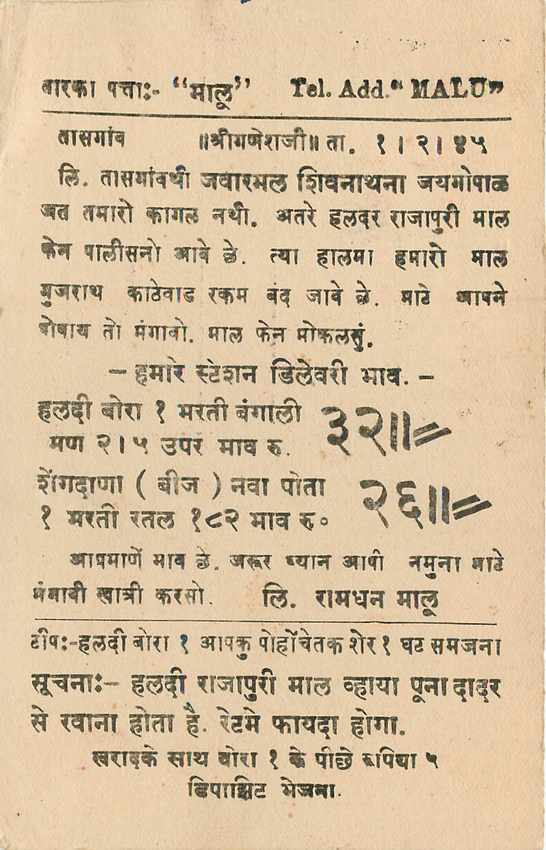 तारका पत्ताः- “मालू” Tel. Add. “MALU”
तासगांव ॥श्रीगणेशजी॥ ता. १।२।४५
लि. तासगांवथी जवारमल शिवनाथना जयगोपाळ
जत तमारो कागल नथी. अतरे हलदर राजापुरी माल
फेन पालीसनो आवे छे. त्या हालमा हमारो माल
गुजराथ काठेवाड रकम बंद जावे छे. माटे आपने
पोषाय तो मंगावो. माल फेन मोकलसुं.
– हमारे स्टेशन डिलेवरी भाव. –
हलदी बोरा १ भरती बंगाली ३२॥=
मण २।५ उपर भाव रु.
शेंगदाणा ( बीज ) नवा पोता २६॥=
१ भरती रतल १८२ भाव रु०
आप्रमाणें भाव छे. जरूर ध्यान आपी नमुना माटे
मंगावी खात्री करसो. लि. रामधन मालू
टीपः-हलदी बोरा १ आपकु पोहोंचेतक शेर १ घट समजना
सूचनाः– हलदी राजापुरी माल व्हाया पूना दादर
से रवाना होता है. रेटमे फायदा होगा.
खरादके साथ बोरा १ के पीछे रूपिया ५
डिपाझिट भेजना.